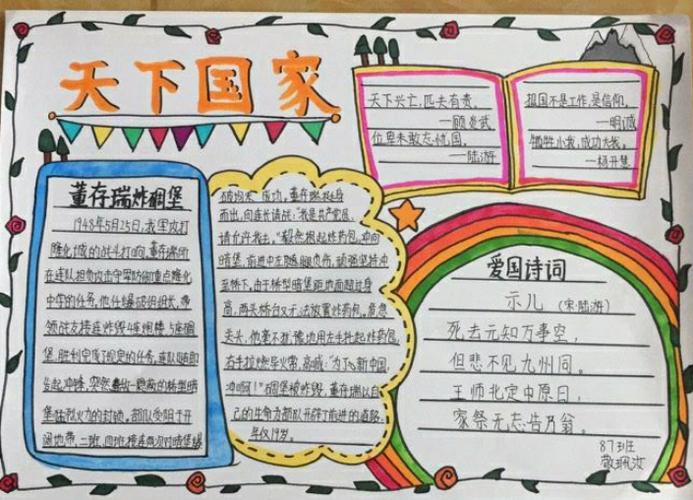 天下国家
天下兴亡，匹夫有责。
—顾炎武
位卑未敢忘忧国。
—陆游
祖国不是工作，是信仰。
—明诚
牺牲小我，成功大我。
—杨开慧
董存瑞炸碉堡
1948年5月25日，我军攻打
隆化城的战斗打响，董存瑞所
在连队担负攻击守军防御重点隆化
中学的任务，他任爆破组组长，带
领战友接连炸毁4座炮楼，5座碉
堡，胜利完成了规定的任务，连队随即
发起冲锋，突然
堡猛烈火力的封锁，部队受阻于开
阔地带，二班、四班接连两次对暗堡爆
破均未成功，董存瑞挺身
而出，向连长请战："我是共产党员，
请允许我去！"毅然抱起炸药包，冲向
暗堡，前进中左腿负伤，顽强坚持冲
至桥下，由于桥型暗堡距地面超过身
高，两头桥台又无法放置炸药包，危急
关头，他毫不犹豫地用左手托起炸药包，
右手拉燃导火索，高喊："为了新中国，
冲啊！"碉堡被炸毁，董存瑞以自
己的生命为部队开辟了前进的道路，
年仅19岁。
爱国诗词
示儿 （宋·陆游）
死去元知万事空，
但悲不见九州同。
王师北定中原日，
家祭无忘告乃翁。
87班
敬珮汝